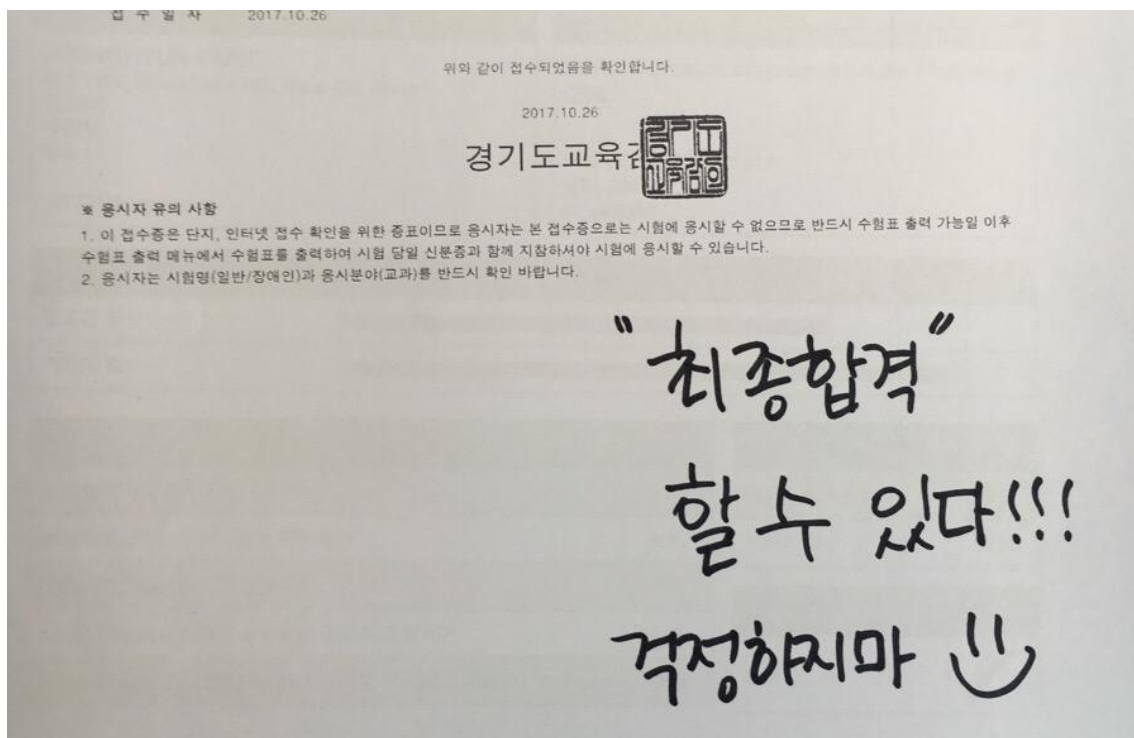 접 수 일 자 2017.10.26
위와 같이 접수되었음을 확인합니다.
2017.10.26
경기도교육감
경기도
교육감의
※ 응시자 유의 사항
1. 이 접수증은 단지, 인터넷 접수 확인을 위한 증표이므로 응시자는 본 접수증으로는 시험에 응시할 수 없으므로 반드시 수험표 출력 가능일 이후
수험표 출력 메뉴에서 수험표를 출력하여 시험 당일 신분증과 함께 지참하셔야 시험에 응시할 수 있습니다.
2. 응시자는 시험명(일반/장애인)과 응시분야(교과)를 반드시 확인 바랍니다.
"최종합격"
할 수 있다!!!
걱정하지마